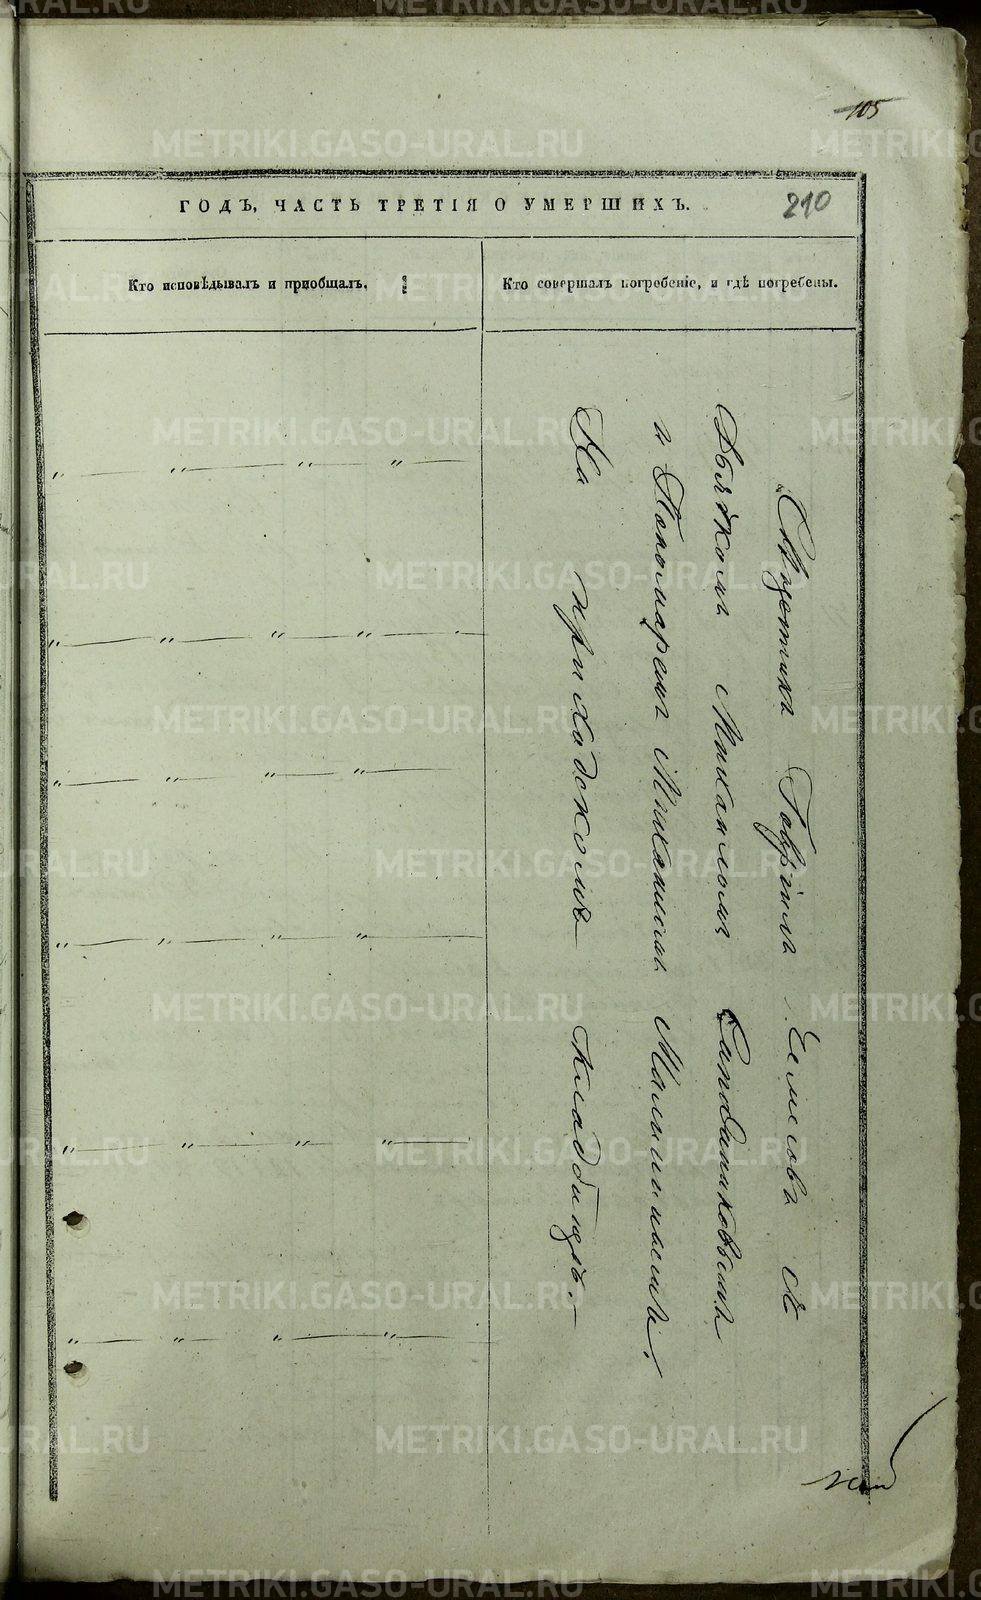 105
ГОДЪ, ЧАСТЬ ТРЕТІЯ О УМЕРШИХЪ.
210
Кто исповѣдывалъ и пріобщалъ.
Кто совершалъ погребеніе, и гдѣ погребены.
Священникъ Гавріилъ съ
Дьячкомъ Михаиломъ
и Пономаремъ Михаиломъ Малининымъ.
На приходскомъ кладбищѣ.
METRIKI.GASO-URAL.RU